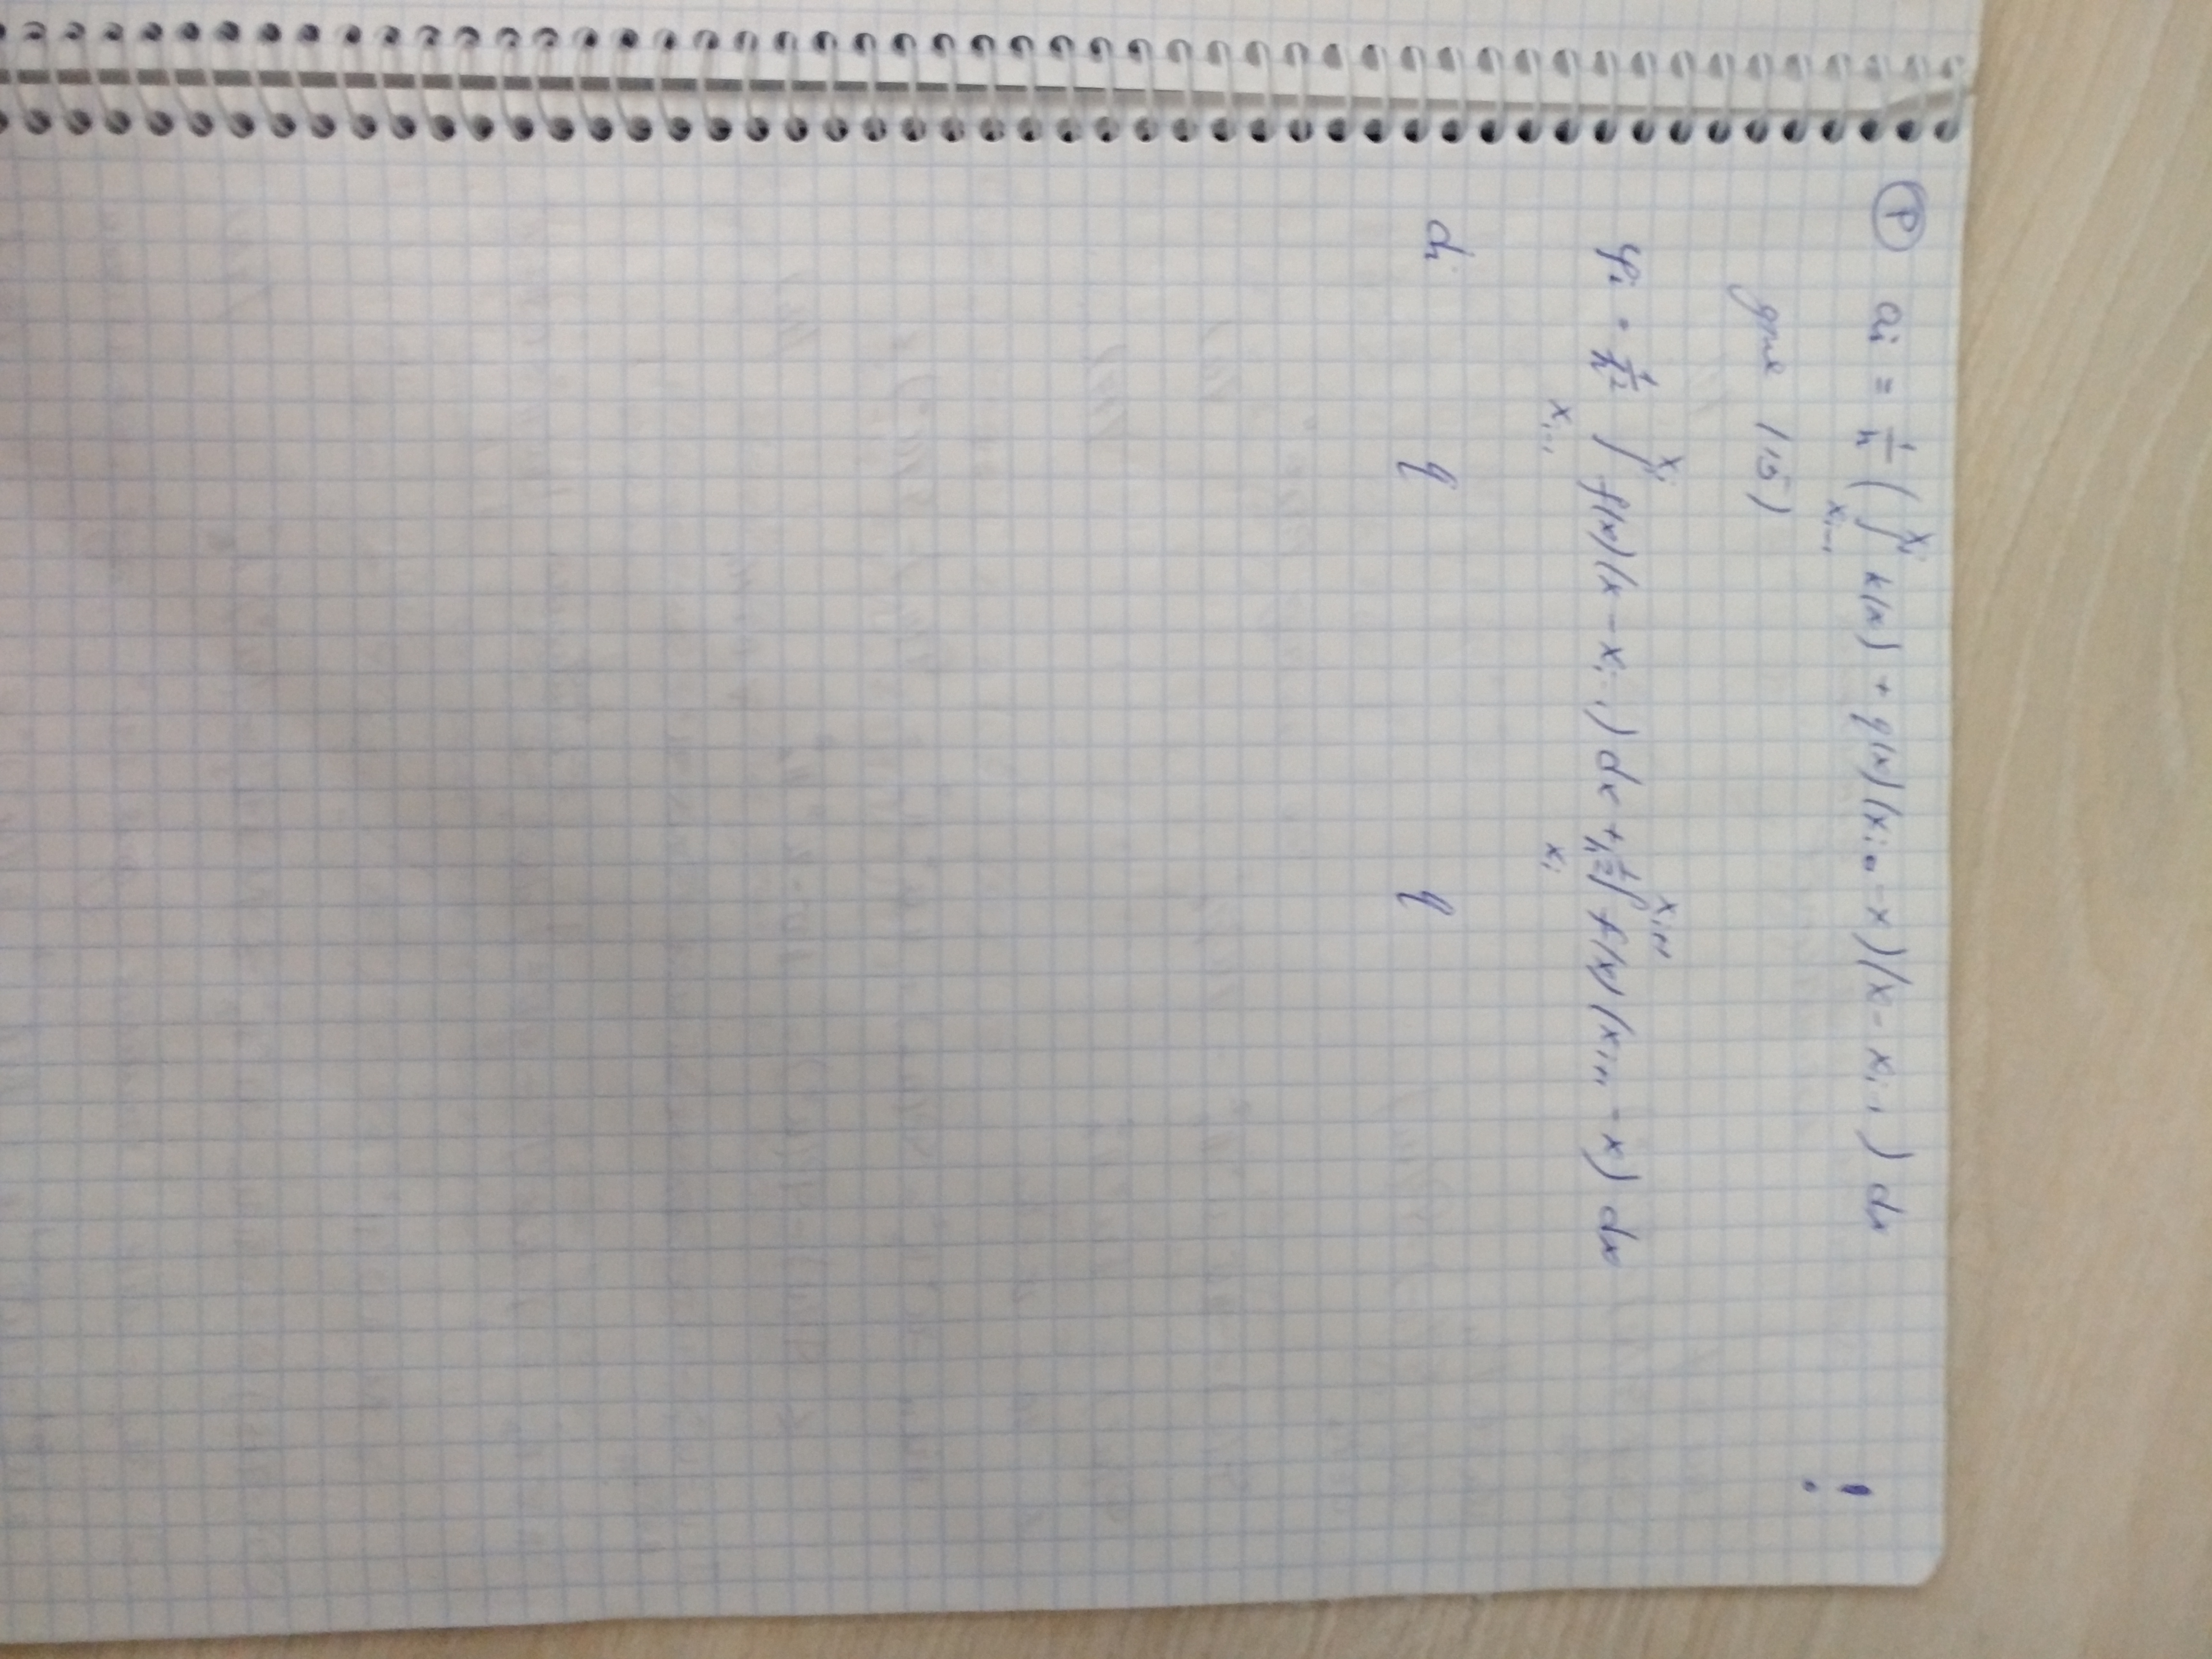 Ⓟ aᵢ = 1/h ( ∫_{xᵢ₋₁}^{xᵢ} k(x) + q(x)(xᵢ - x)(x - xᵢ₋₁) dx !
для (15)
φᵢ = 1/h² ∫_{xᵢ₋₁}^{xᵢ} f(x)(x - xᵢ₋₁) dx + 1/h² ∫_{xᵢ}^{xᵢ₊₁} f(x)(xᵢ₊₁ - x) dx
dᵢ q q